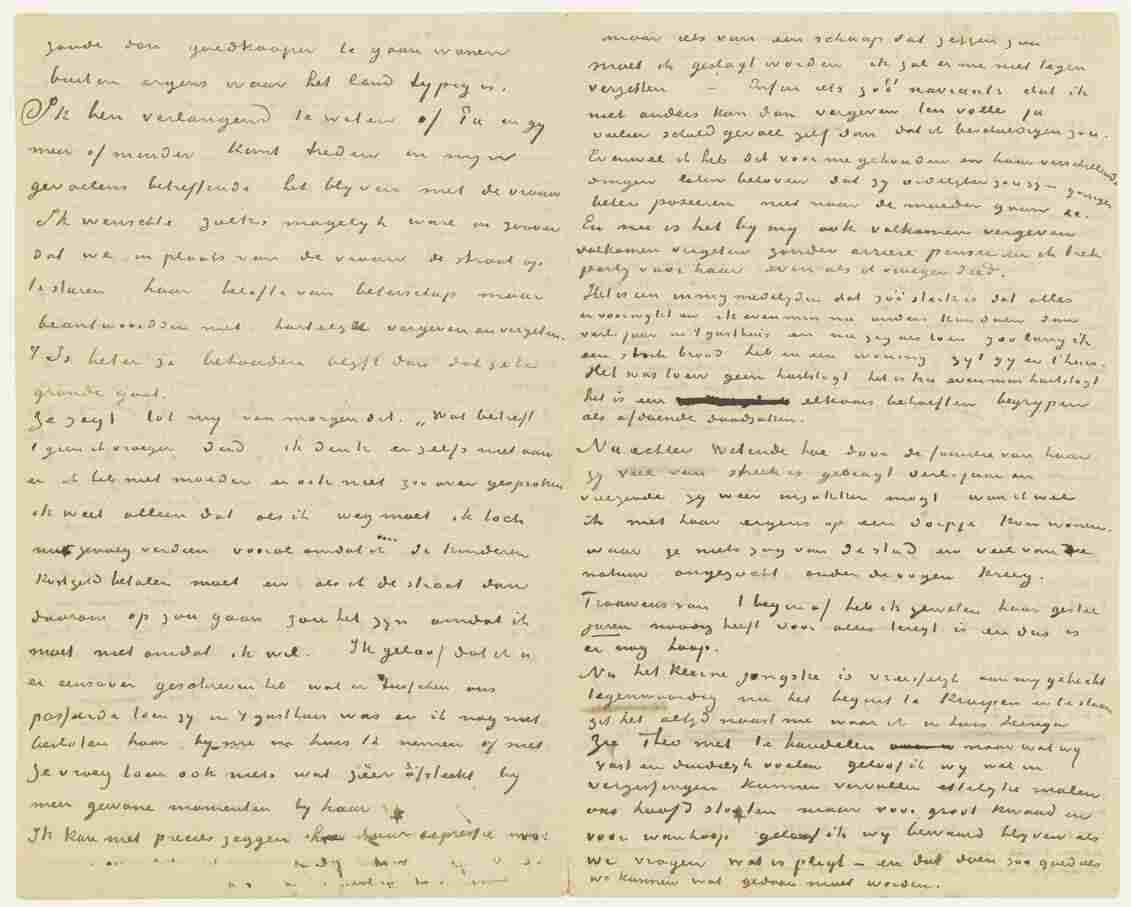 zoude dan goedkooper te gaan wonen
buiten ergens waar het land typig is.
Ik ben verlangend te weten of Pa en gij
meer of minder kunt treden in mijn
gevoelens betreffende het blijven met de vrouw
Ik wenschte zoiets mogelijk ware in zoover
dat we in plaats van de vrouw de straat op
te sturen haar belofte van beterschap maar
beantwoordden met hartelijk vergeven en vergeten.
't Is beter ze behouden blijft dan dat ze te
gronde gaat.
Ze zegt tot mij van morgen dit. „Wat betreft
't geen ik vroeger deed ik denk er zelfs niet aan
en ik heb met moeder er ook niet zoo over gesproken
ik weet alleen dat als ik weg moet ik toch
niet genoeg verdien vooral omdat ik de kinderen
kostgeld betalen moet en als ik de straat dan
daarom op zou gaan zou het zijn omdat ik
moet niet omdat ik wil. Ik geloof dat ik u
er eens over geschreven heb wat er tusschen ons
passeerde toen zij in 't gasthuis was en ik nog niet
besloten haar bij me in huis te nemen of niet
Ze vroeg toen ook niets wat zeer afsteekt bij
meer gewone momenten bij haar
Ik kan niet precies zeggen haar expressie maar
maar iets van een schaap dat zeggen zou
moet ik geslagt worden ik zal er me niet tegen
verzetten – Enfin iets zóó navrants dat ik
niet anders kan dan vergeven ten volle ja
veeleer schuld gevoel zelf dan dat ik beschuldigen zou.
Evenwel ik heb dit voor me gehouden en haar verschillende
dingen laten beloven dat zij ordelijker zou zijn – gauwer
beter poseeren niet naar de moeder gaan &c.
En nu is het bij mij ook volkomen vergeven
volkomen vergeten zonder arrière pensée en ik trek
partij voor haar even als ik vroeger deed.
Het is een in mij medelijden dat zóó sterk is dat alles
er voor wijkt en ik evenmin nu anders kan doen dan
verl. jaar in 't gasthuis en nu zeg als toen zoo lang ik
een stuk brood heb en een woning zijt gij er t'huis.
Het was toen geen hartstogt het is nu evenmin hartstogt
het is een elkaars behoeften begrijpen
als afdoende daadzaken.
Nu echter wetende hoe door de familie van haar
zij van streek is gebragt verl. jaar en
vreezende zij weer inzakken mogt wou ik wel
ik met haar ergens op een dorpje kon wonen.
waar ze niets zag van de stad en veel van de
natuur ongezocht onder de oogen kreeg.
Trouwens van 't begin af heb ik geweten haar gestel
jaren noodig heeft voor alles teregt is en dus is
er nog hoop.
Nu het kleine jongske is vreesselijk aan mij gehecht
tegenwoordig nu het begint te kruipen en te staan
zit het altijd naast me waar ik in huis bezig
Zie Theo met te handelen naar wat wij
vast en duidelijk voelen geloof ik wij wel in
vergissingen kunnen vervallen ettelijke malen
ons hoofd stooten maar voor groot kwaad en
voor wanhoop geloof ik wij bewaard blijven als
we vragen wat is pligt – en dat doen zoo goed als
we kunnen wat gedaan moet worden.